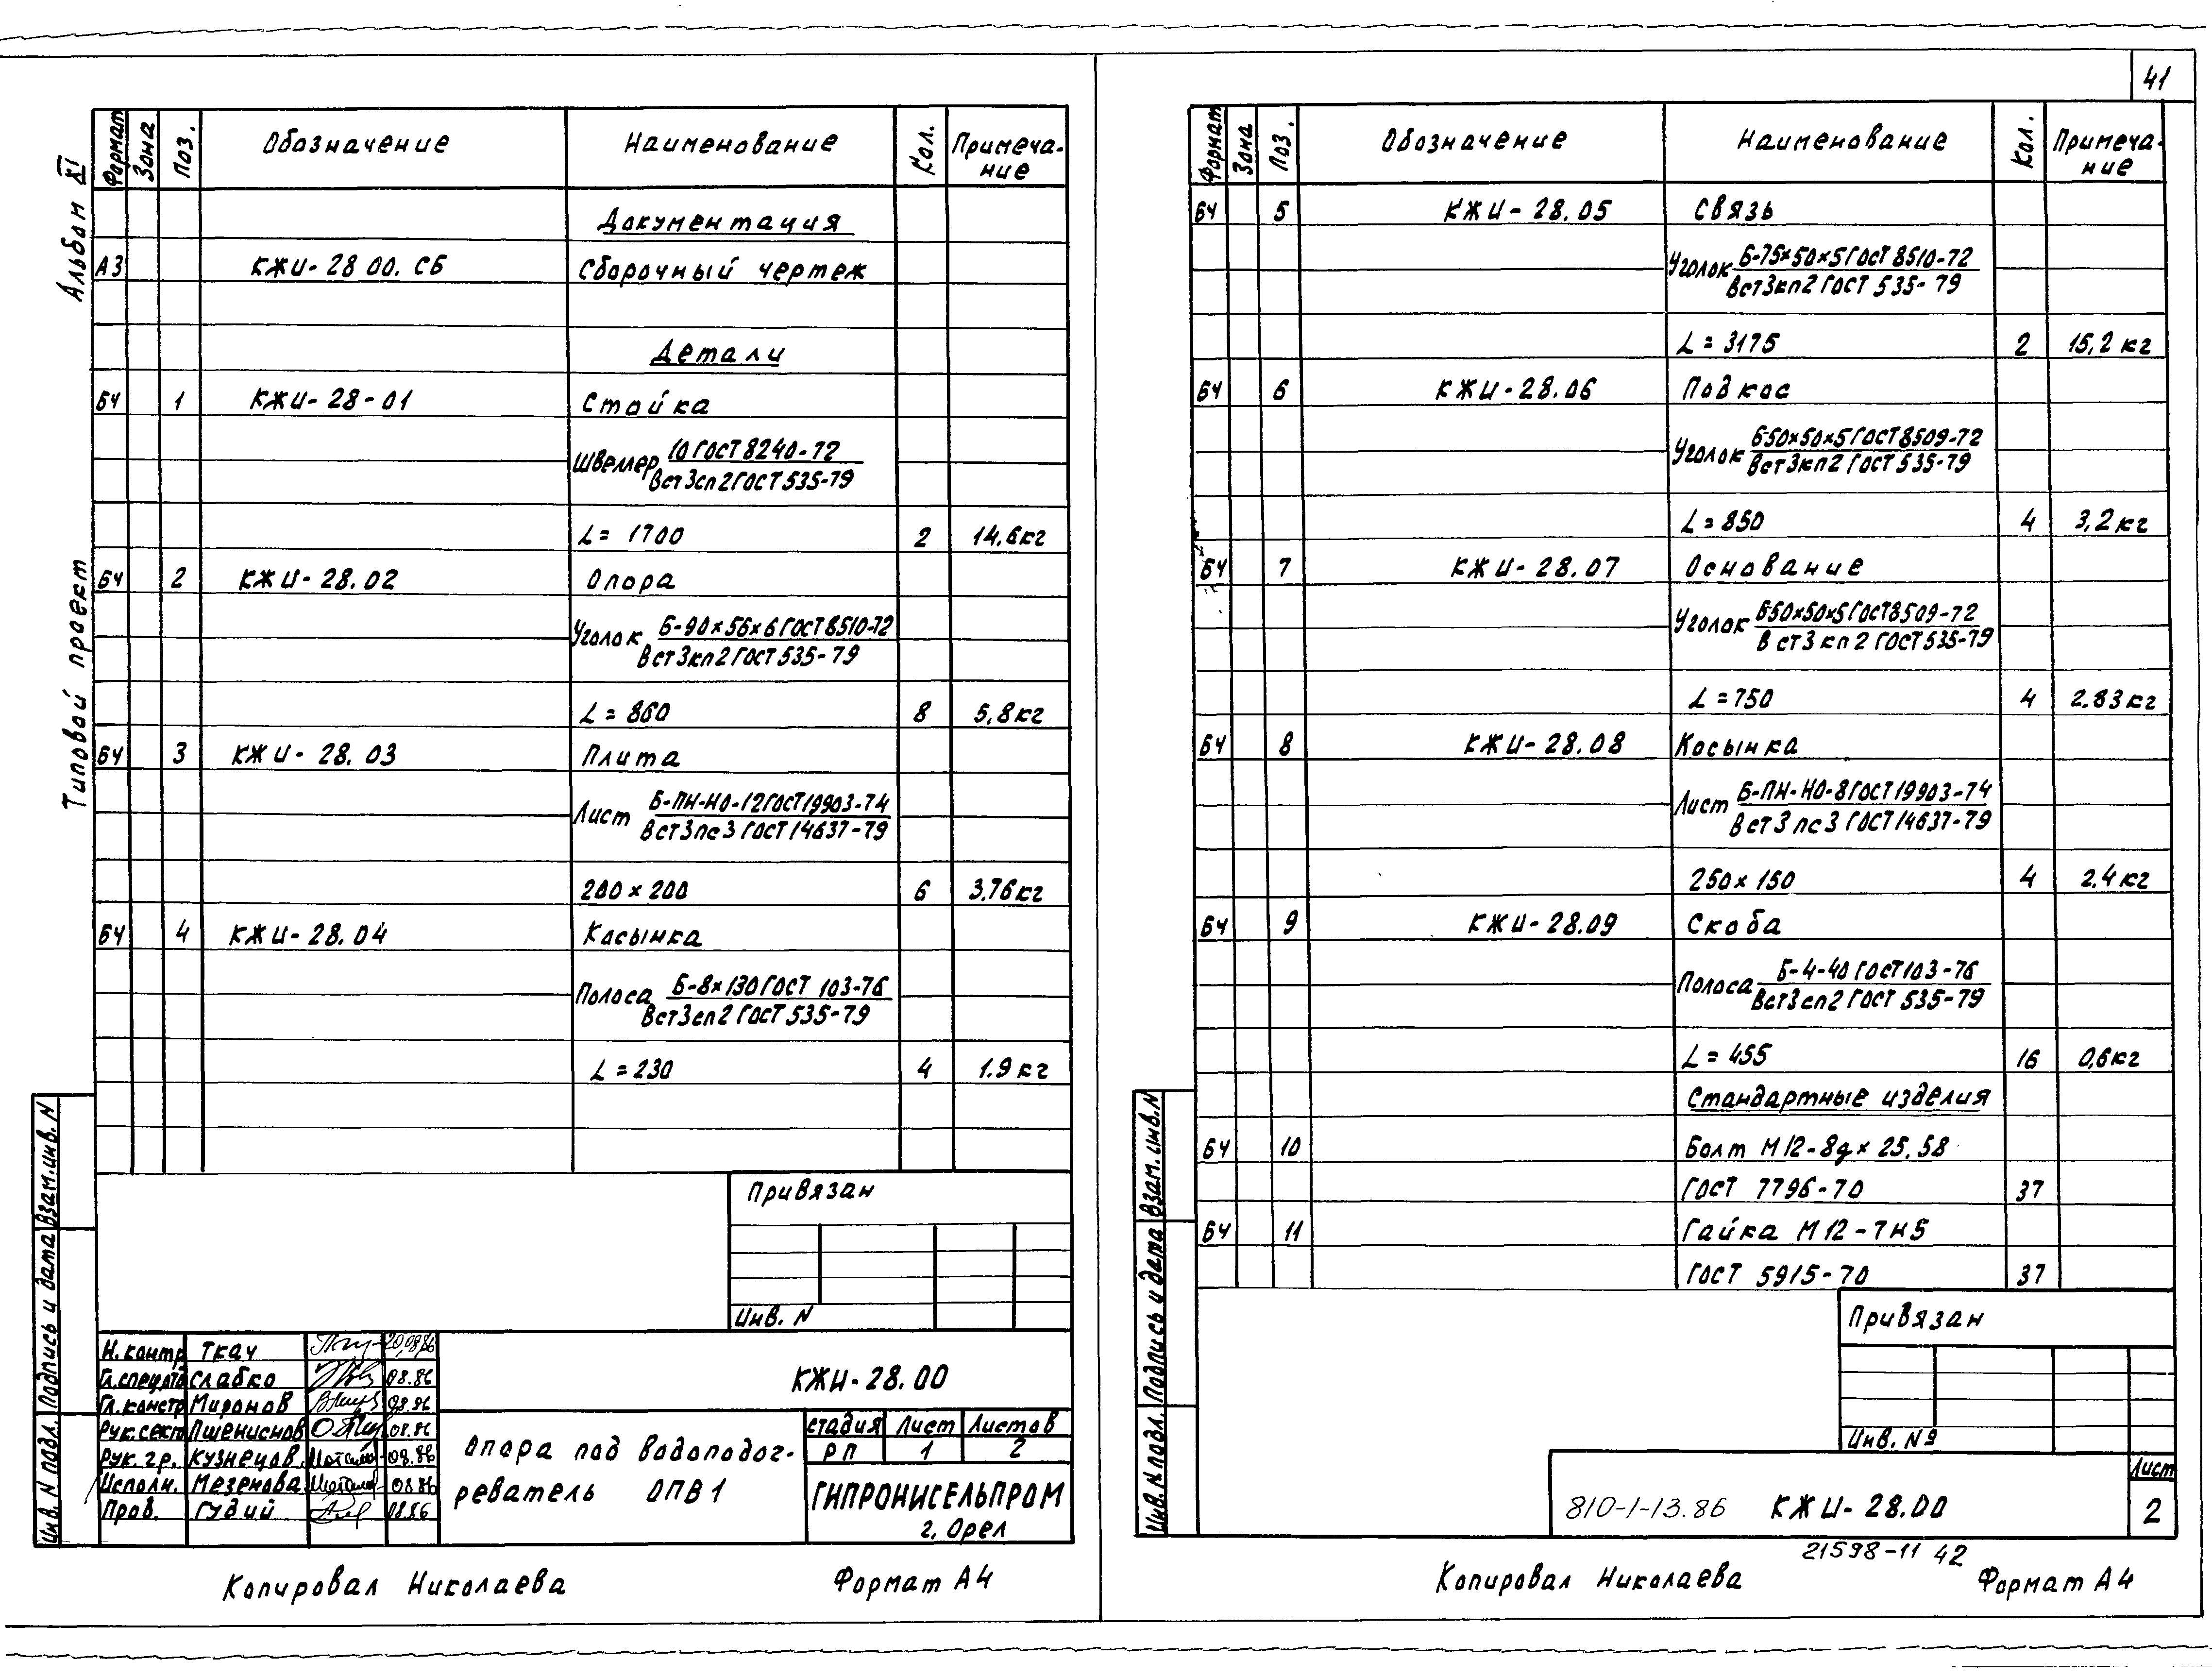 41
Альбом XI
Типовой проект
Формат Зона Поз. Обозначение Наименование Кол. Примеча-
ние
Документация
А3 КЖИ-28 00. СБ Сборочный чертеж
Детали
БЧ 1 КЖИ-28-01 Стойка
Швеллер 10 ГОСТ 8240-72
Вст3сп2 ГОСТ 535-79
L = 1700 2 14,6кг
БЧ 2 КЖИ-28.02 Опора
Уголок Б-90×56×6 ГОСТ 8510-72
Вст3кп2 ГОСТ 535-79
L = 860 8 5,8кг
БЧ 3 КЖИ-28.03 Плита
Лист Б-ПН-НО-12 ГОСТ 19903-74
Вст3пс3 ГОСТ 14637-79
200×200 6 3,76кг
БЧ 4 КЖИ-28.04 Косынка
Полоса Б-8×130 ГОСТ 103-76
Вст3сп2 ГОСТ 535-79
L = 230 4 1.9 кг
Привязан
Инв. N
Инв. N подл. Подпись и дата Взам.инв. N
Н.контр Ткач 20.08.86
Гл.спецАТО Слабко 08.86
Гл.констр Миронов 08.86
Рук.сект Пшениснов 08.86
Рук. гр. Кузнецов 08.86
Исполн. Мезенова 08.86
Пров. Гудий 08.86
КЖИ-28.00
Опора под водоподог-
реватель ОПВ1
Стадия Лист Листов
РП 1 2
ГИПРОНИСЕЛЬПРОМ
г. Орел
Копировал Николаева Формат А4
Формат Зона Поз. Обозначение Наименование Кол. Примеча-
ние
БЧ 5 КЖИ-28.05 Связь
Уголок Б-75×50×5 ГОСТ 8510-72
Вст3кп2 ГОСТ 535-79
L = 3175 2 15,2 кг
БЧ 6 КЖИ-28.06 Подкос
Уголок Б-50×50×5 ГОСТ 8509-72
Вст3кп2 ГОСТ 535-79
L = 850 4 3,2 кг
БЧ 7 КЖИ-28.07 Основание
Уголок Б-50×50×5 ГОСТ 8509-72
Вст3кп2 ГОСТ 535-79
L = 750 4 2.83 кг
БЧ 8 КЖИ-28.08 Косынка
Лист Б-ПН-НО-8 ГОСТ 19903-74
Вст3пс3 ГОСТ 14637-79
250×150 4 2.4 кг
БЧ 9 КЖИ-28.09 Скоба
Полоса Б-4-40 ГОСТ 103-76
Вст3сп2 ГОСТ 535-79
L = 455 16 0,6кг
Стандартные изделия
БЧ 10 Болт М12-8g×25.58
ГОСТ 7796-70 37
БЧ 11 Гайка М12-7Н5
ГОСТ 5915-70 37
Привязан
Инв. №
Инв. N подл. Подпись и дата Взам. инв.N
810-1-13.86 КЖИ-28.00
Лист
2
21598-11 42
Копировал Николаева Формат А4